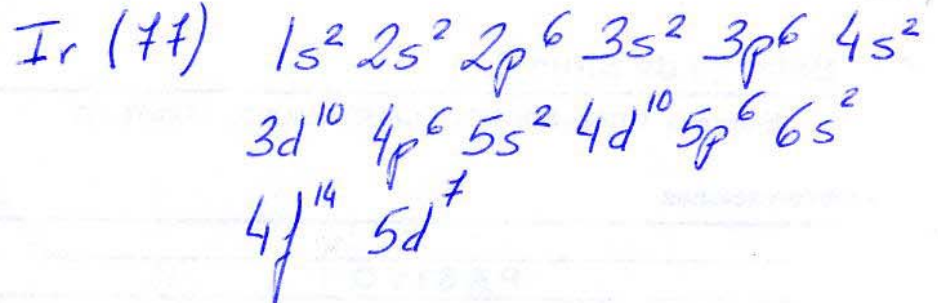 Ir (77) 1s² 2s² 2p⁶ 3s² 3p⁶ 4s²
3d¹⁰ 4p⁶ 5s² 4d¹⁰ 5p⁶ 6s²
4f¹⁴ 5d⁷